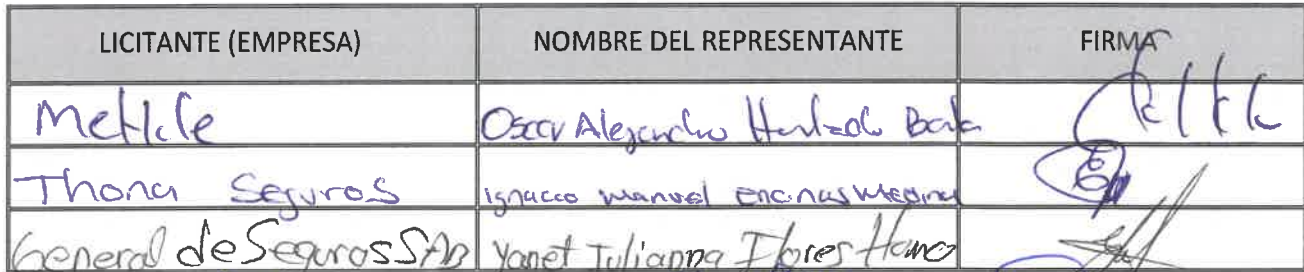 LICITANTE (EMPRESA) NOMBRE DEL REPRESENTANTE FIRMA
Metlife Oscar Alejandro
Thona Seguros Ignacio Manuel Encinas Medina
General de Seguros SAB Yanet Julianna Flores